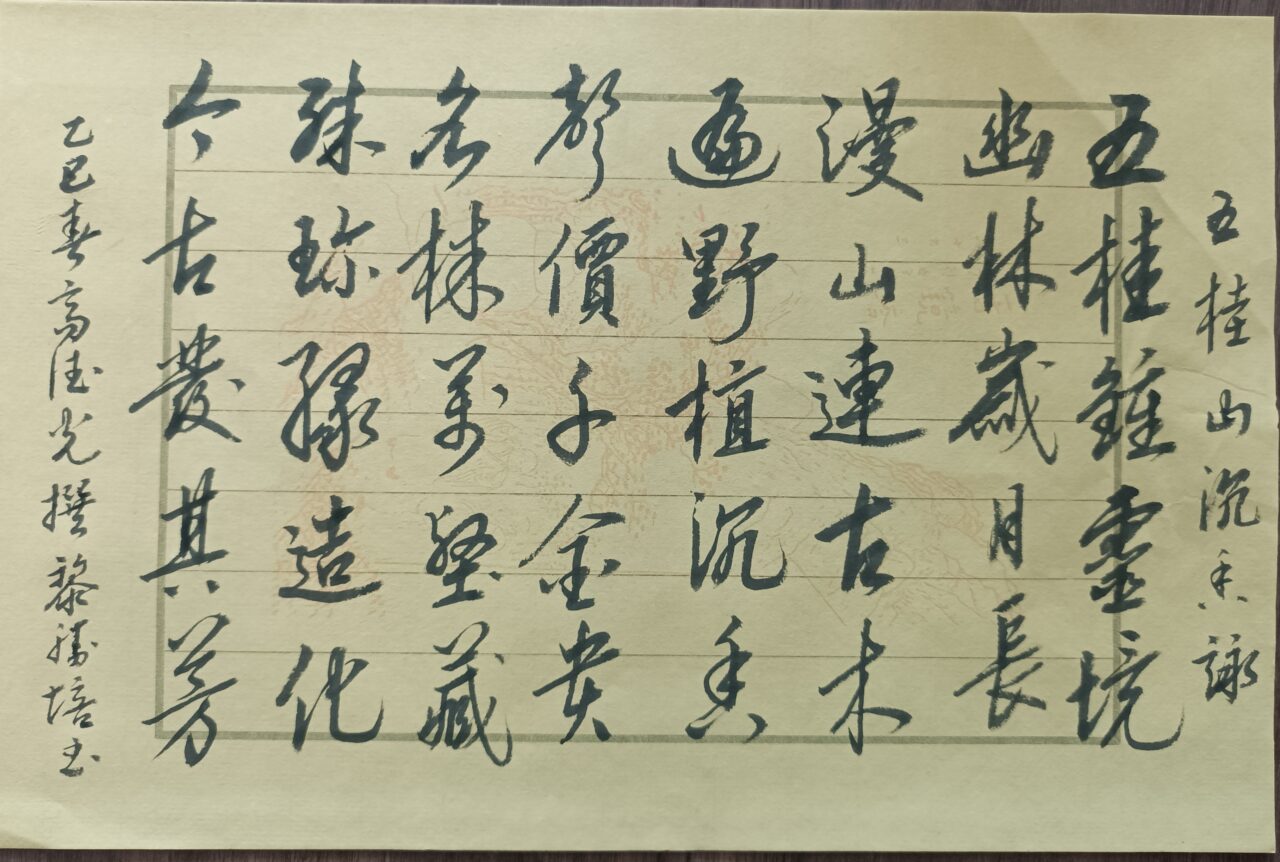 五桂山沉香詠
五桂鍾靈境
幽林歲月長
漫山連古木
遍野植沉香
聲價千金貴
名株萬壑藏
殊珍緣造化
今古發其芳
乙巳春高德光撰黎勝培书